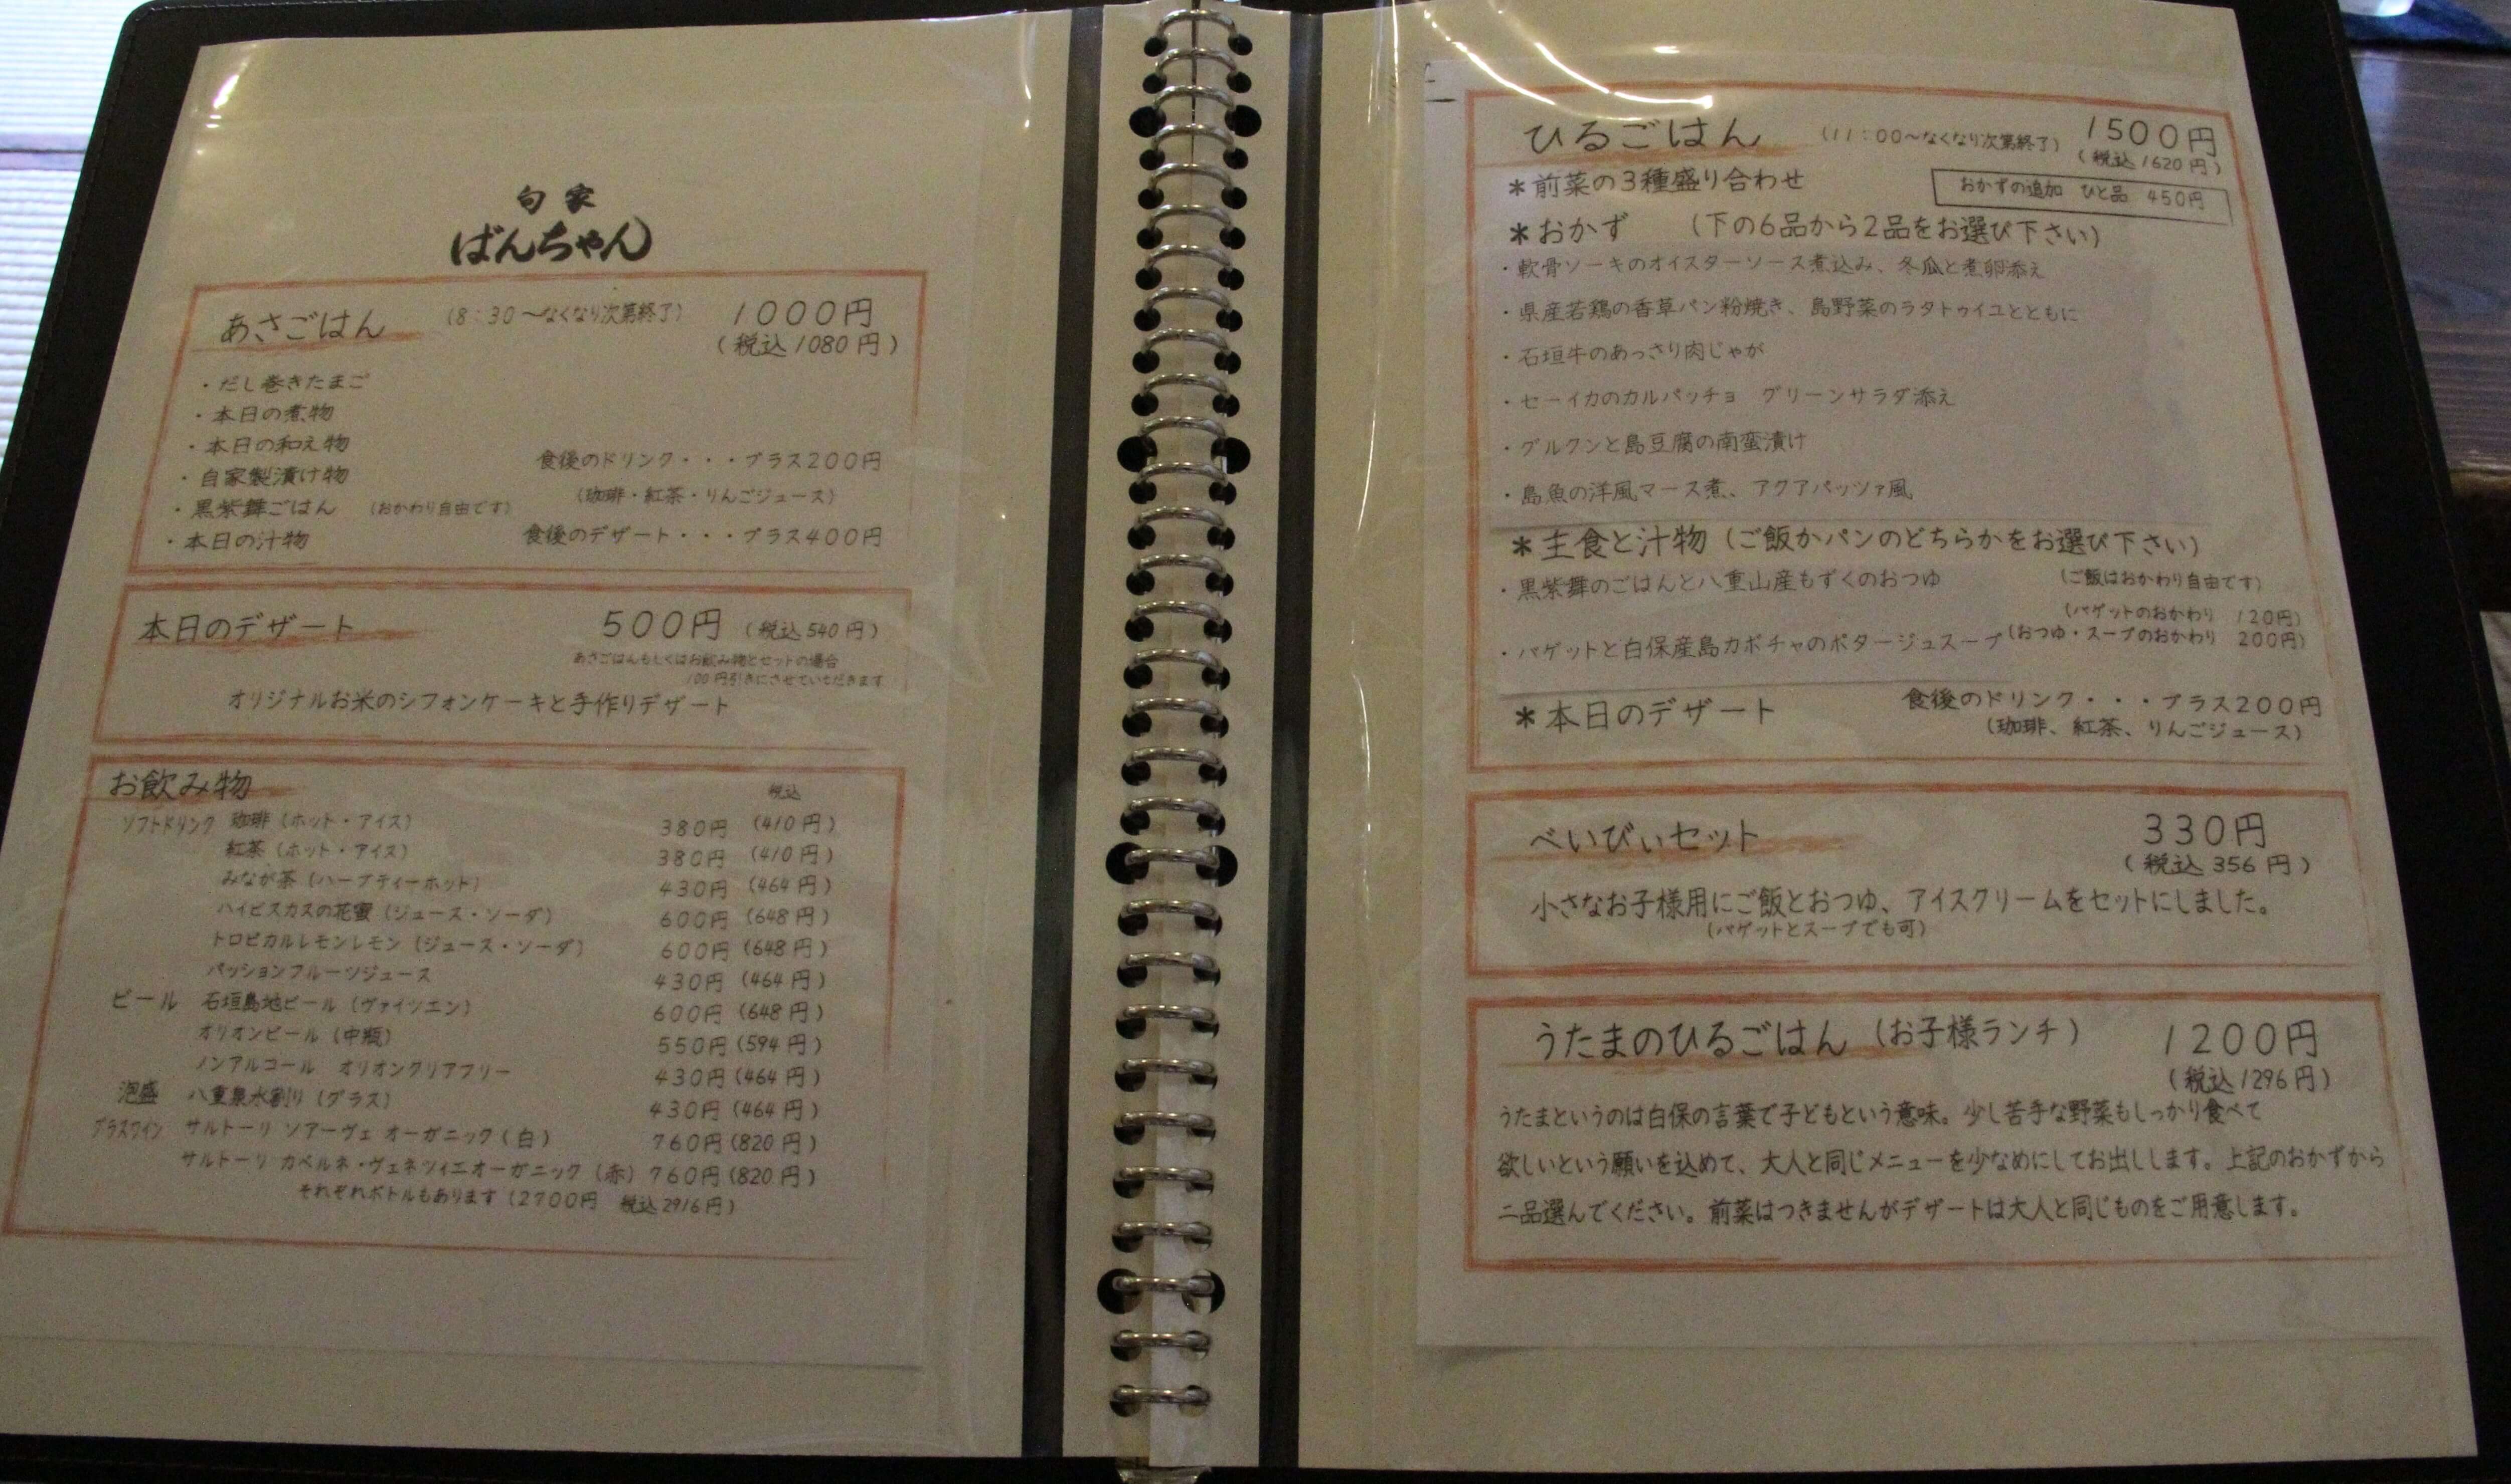 旬家
ばんちゃん
あさごはん (8:30~なくなり次第終了) 1000円
(税込1080円)
・だし巻きたまご
・本日の煮物
・本日の和え物
・自家製漬け物
・黒紫舞ごはん (おかわり自由です)
・本日の汁物
食後のドリンク・・・プラス200円
(珈琲・紅茶・りんごジュース)
食後のデザート・・・プラス400円
本日のデザート 500円 (税込540円)
あさごはんもしくはお飲み物とセットの場合
100円引きにさせていただきます
オリジナルお米のシフォンケーキと手作りデザート
お飲み物 税込
ソフトドリンク 珈琲(ホット・アイス) 380円 (410円)
紅茶(ホット・アイス) 380円 (410円)
みなが茶(ハーブティーホット) 430円 (464円)
ハイビスカスの花蜜(ジュース・ソーダ) 600円 (648円)
トロピカルレモンレモン(ジュース・ソーダ) 600円 (648円)
パッションフルーツジュース 430円 (464円)
ビール 石垣島地ビール(ヴァイツエン) 600円 (648円)
オリオンビール(中瓶) 550円 (594円)
ノンアルコール オリオンクリアフリー 430円 (464円)
泡盛 八重泉水割り(グラス) 430円 (464円)
グラスワイン サルトーリ ソアーヴェ オーガニック(白) 760円 (820円)
サルトーリ カベルネ・ヴェネツィエオーガニック(赤) 760円 (820円)
それぞれボトルもあります(2700円 税込2916円)
ひるごはん (11:00~なくなり次第終了) 1500円
(税込1620円)
*前菜の3種盛り合わせ
おかずの追加 ひと品 450円
*おかず (下の6品から2品をお選び下さい)
・軟骨ソーキのオイスターソース煮込み、冬瓜と煮卵添え
・県産若鶏の香草パン粉焼き、島野菜のラタトゥイユとともに
・石垣牛のあっさり肉じゃが
・セーイカのカルパッチョ グリーンサラダ添え
・グルクンと島豆腐の南蛮漬け
・島魚の洋風マース煮、アクアパッツァ風
*主食と汁物(ご飯かパンのどちらかをお選び下さい)
・黒紫舞のごはんと八重山産もずくのおつゆ (ご飯はおかわり自由です)
(バゲットのおかわり 120円)
・バゲットと白保産島カボチャのポタージュスープ (おつゆ・スープのおかわり 200円)
*本日のデザート 食後のドリンク・・・プラス200円
(珈琲、紅茶、りんごジュース)
べいびぃセット 330円
(税込356円)
小さなお子様用にご飯とおつゆ、アイスクリームをセットにしました。
(バゲットとスープでも可)
うたまのひるごはん(お子様ランチ) 1200円
(税込1296円)
うたまというのは白保の言葉で子どもという意味。少し苦手な野菜もしっかり食べて
欲しいという願いを込めて、大人と同じメニューを少なめにしてお出しします。上記のおかずから
二品選んでください。前菜はつきませんがデザートは大人と同じものをご用意します。